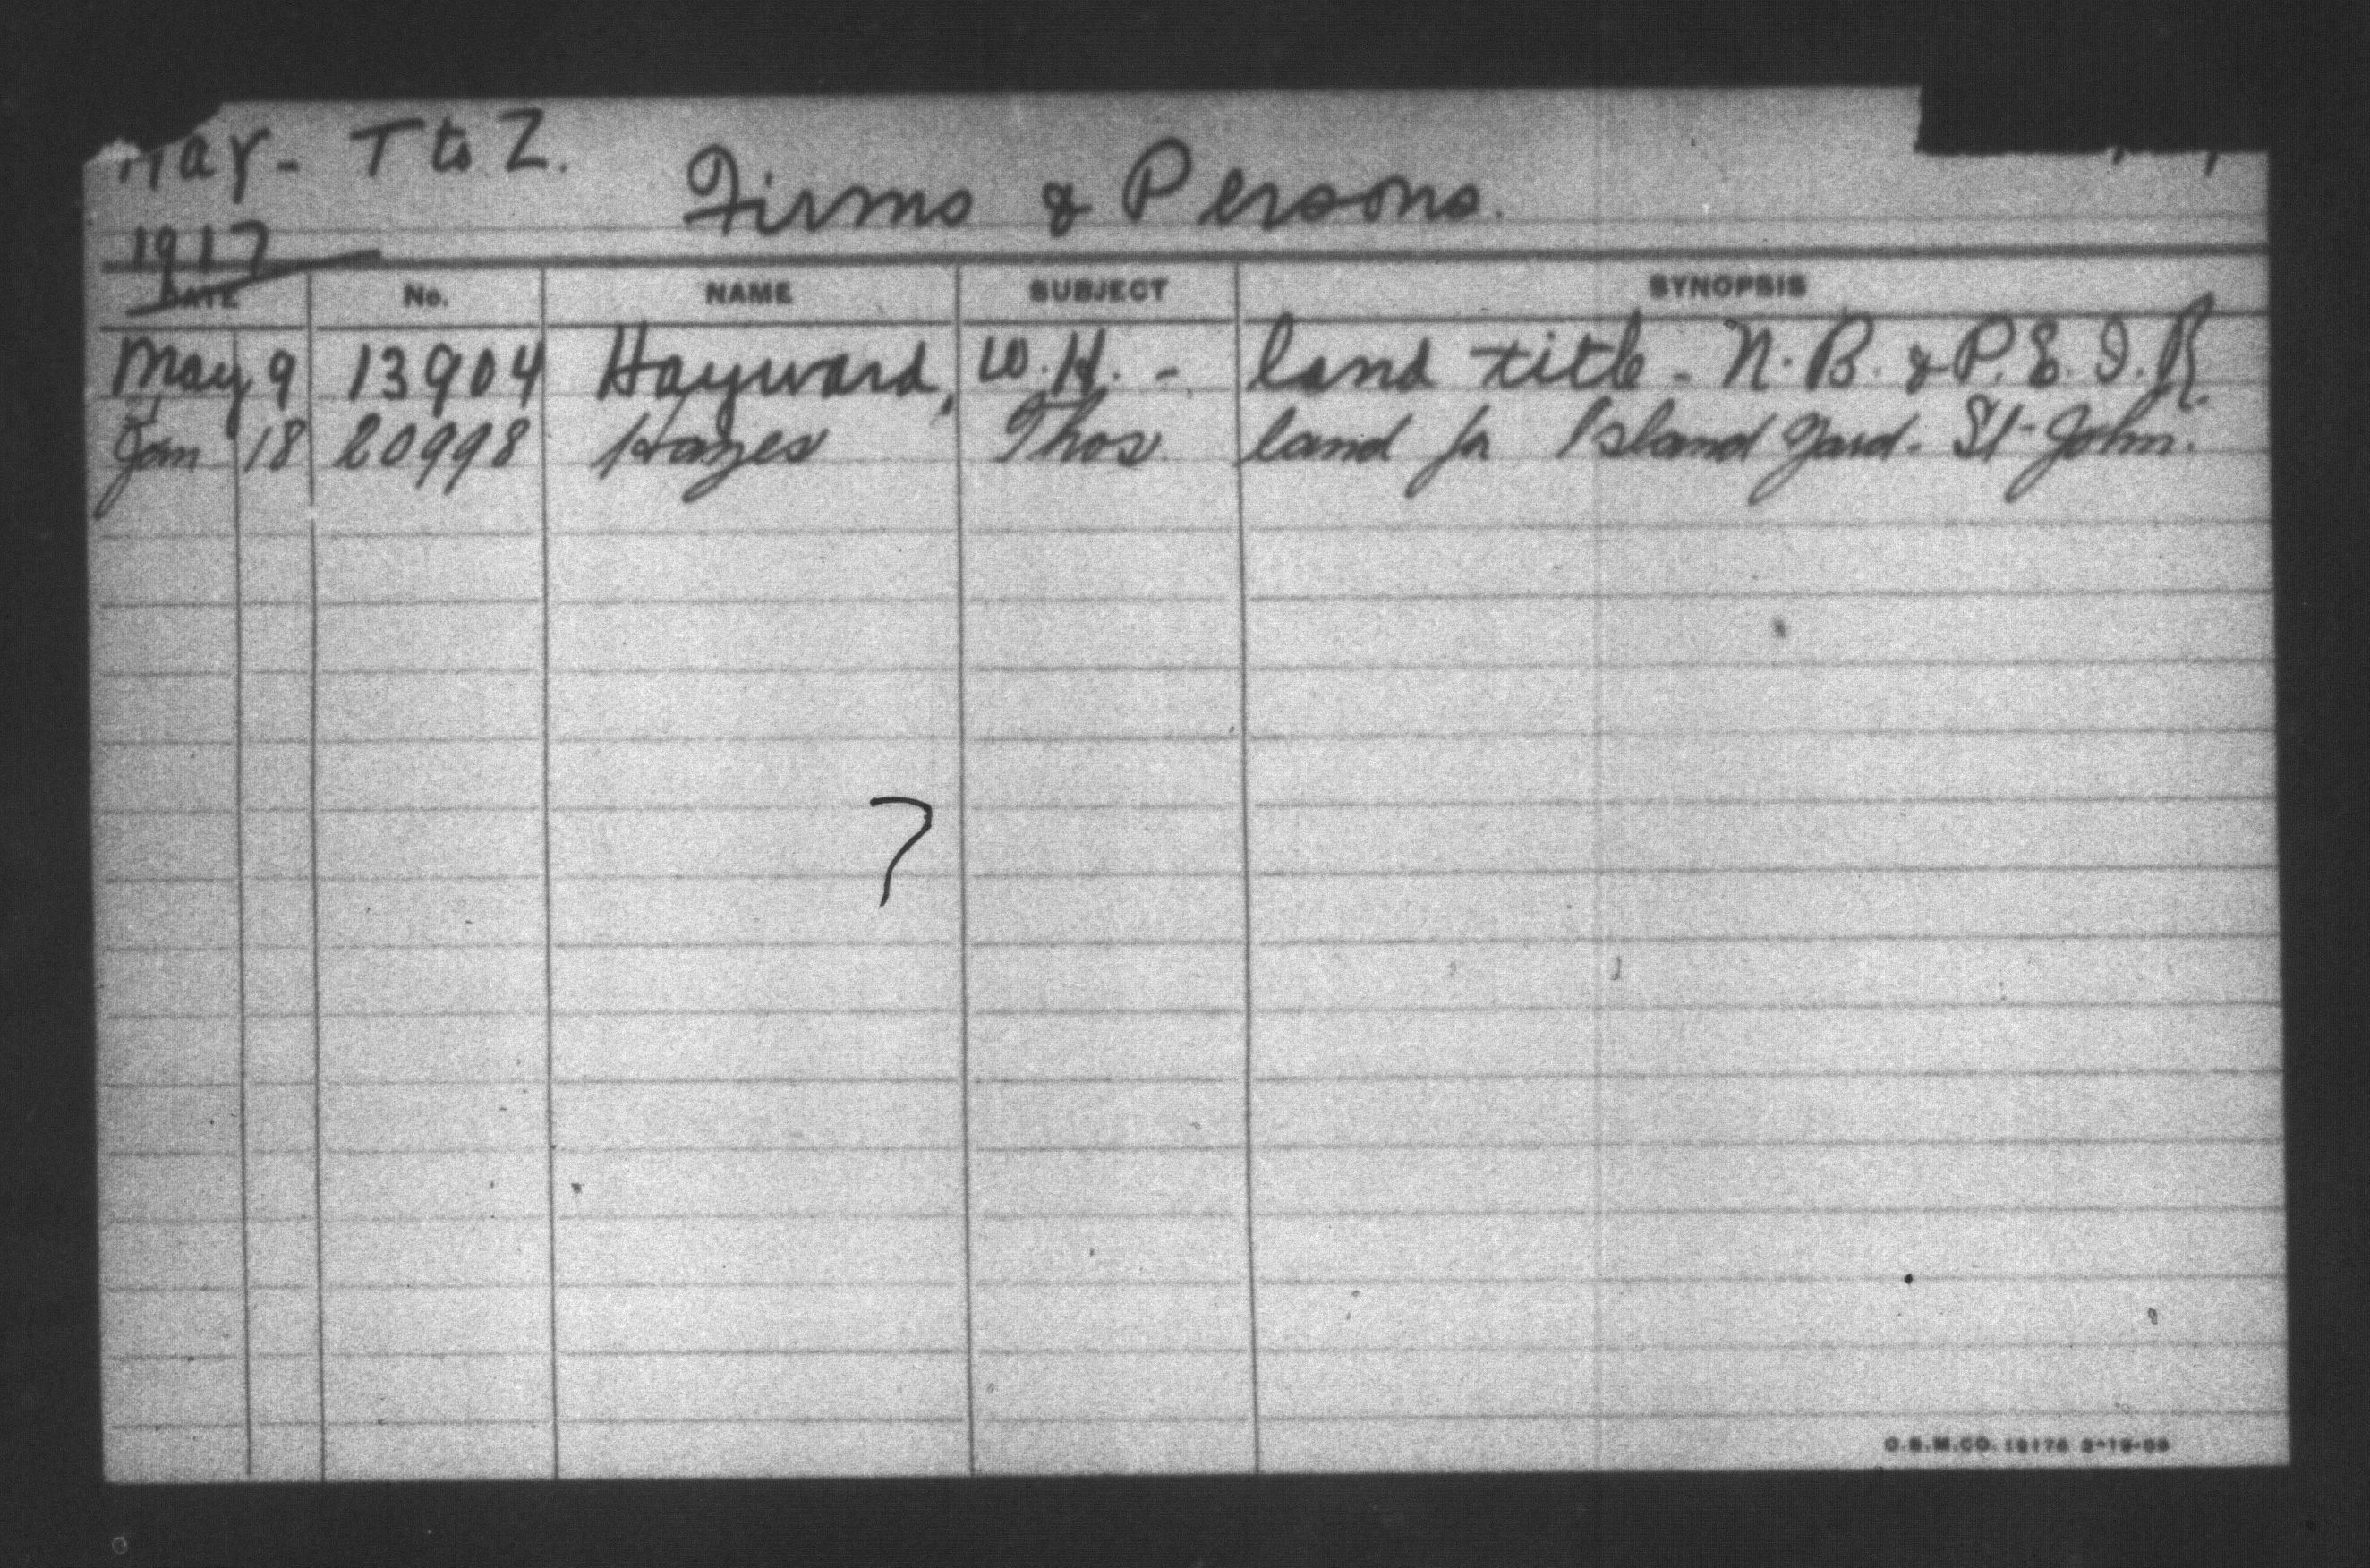 Hay - T to Z.
Firms & Persons.
1917
DATE No. NAME SUBJECT SYNOPSIS
May 9 13904 Hayward, W.H. - land title - N.B. & P.E.I.R.
Jan 18 20998 Hayes Thos. land for Island Yard - St John.
7
O.S.M.CO.